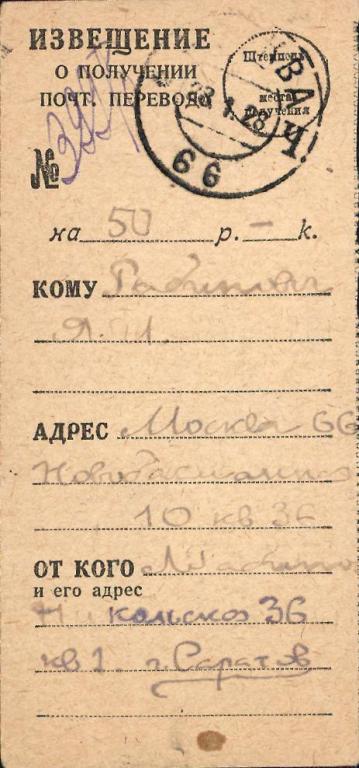 ИЗВЕЩЕНИЕ
О ПОЛУЧЕНИИ
ПОЧТ. ПЕРЕВОДА
Штемпель
места
получения
66
№
на 50 р. – к.
КОМУ Рабинович
АДРЕС Москва 66
10 кв 36
ОТ КОГО
и его адрес
кольская 36
кв 1. г. Саратов